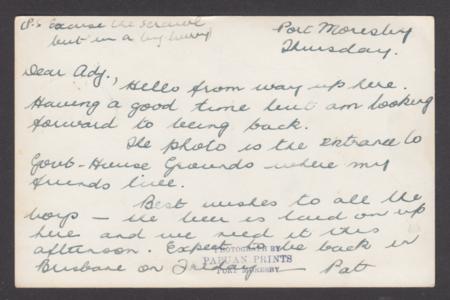 (P.S Excuse the scrawl
but in a big hurry)
Port Moresby
Thursday.
Dear Adj.,
Hello from way up here.
Having a good time but am looking
forward to being back.
The photo is the entrance to
Govt-House Grounds where my
friends live.
Best wishes to all the
boys – the beer is laid on up
here and we need it this
afternoon. Expect to be back in
Brisbane on Friday — Pat
PHOTOGRAPH BY
PAPUAN PRINTS
PORT MORESBY